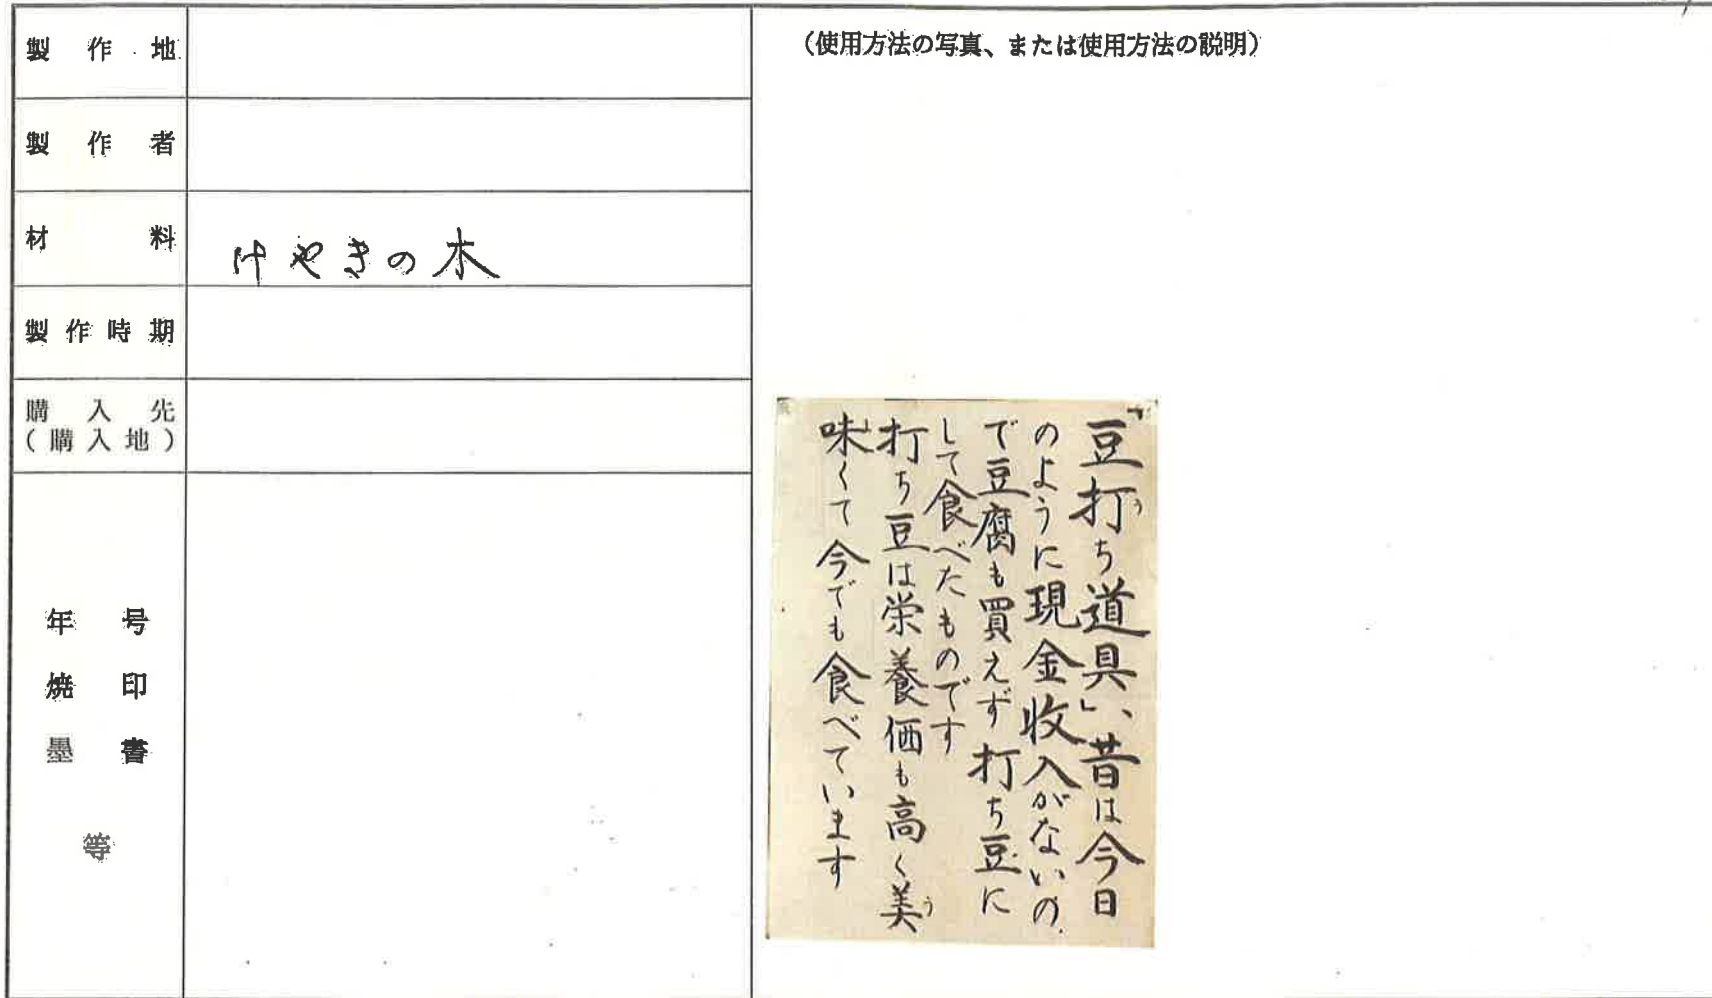 製作地
製作者
材料
けやきの木
製作時期
購入先
(購入地)
年号
焼印
墨書
等
(使用方法の写真、または使用方法の説明)
「豆打ち道具」、昔は今日
のように現金収入がないの
で豆腐も買えず打ち豆に
して食べたものです
打ち豆は栄養価も高く美
味くて今でも食べています